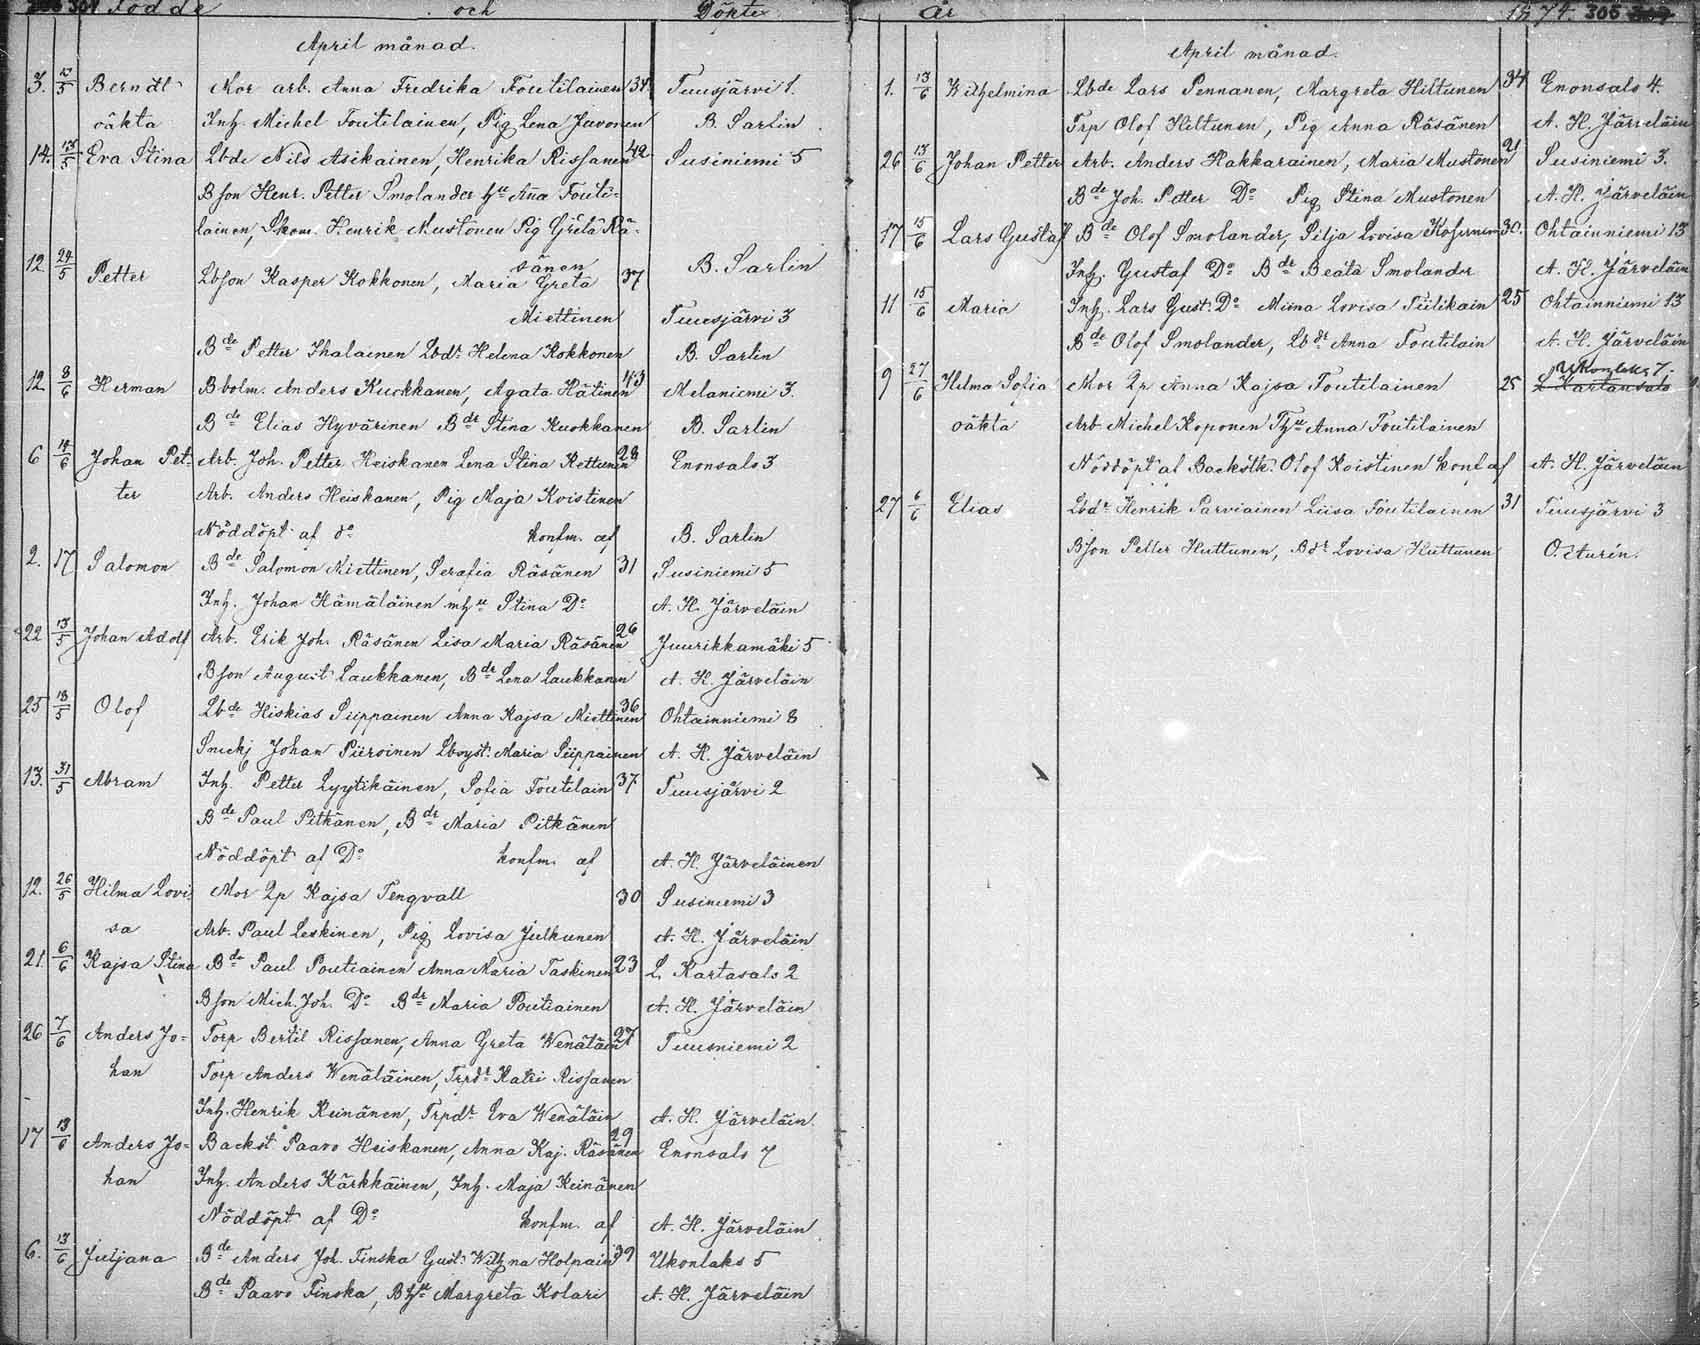 304 Födde och Döpte
April månad.
3. 13/5 Berndt Mor arb. Anna Fredrika Foutilainen 34. Tuusjärvi 1.
oäkta Inh. Michel Foutilainen, Pig Lena Juvonen B. Sarlin
14. 13/5 Eva Stina Lbde Nils Asikainen, Henrika Rissanen 42 Susiniemi 5
Bson Henr. Petter Smolander hu Anna Fouti-
lainen, Skom. Henrik Mustonen Pig Greta Rä-
sänen B. Sarlin
12. 24/5 Petter Lbson Kasper Kokkonen, Maria Greta 37
Miettinen Tuusjärvi 3
Bde Petter Ihalainen Lbdr Helena Kokkonen B. Sarlin
12 8/6 Herman Bbolm. Anders Kuokkanen, Agata Hätinen 43 Melaniemi 3.
Bde Elias Hyvärinen Bdr Stina Kuokkanen B. Sarlin
6 14/6 Johan Pet- Arb. Joh. Petter Heiskanen Lena Stina Kettunen 28 Enonsalo 3
ter Arb. Anders Heiskanen, Pig Maja Koistinen
Nöddöpt af do konfm. af B. Sarlin
2. 17 Salomon Bde Salomon Miettinen, Serafia Räsänen 31 Susiniemi 5
Inh. Johan Hämäläinen mhu Stina Do A. H. Järveläin
22 13/5 Johan Adolf Arb. Erik Joh. Räsänen Lisa Maria Räsänen 26 Juurikkamäki 5
Bson August Laukkanen, Bdr Lena Laukkanen A. H. Järveläin
25 18/5 Olof Lbde Hiskias Siippainen Anna Kajsa Miettinen 36 Ohtainniemi 8
Snickj Johan Piiroinen Lbsyst. Maria Siippainen A. H. Järveläin
13. 31/5 Abram Inh. Petter Lyytikäinen, Sofia Foutilain 37 Tuusjärvi 2
Bde Paul Pitkänen, Bdr Maria Pitkänen
Nöddöpt af Do konfm. af A. H. Järveläinen
12. 26/5 Hilma Lovi- Mor Qp Kajsa Tengvall 30 Susiniemi 3
sa Arb. Paul Leskinen, Pig Lovisa Julkunen A. H. Järveläin
21. 6/6 Kajsa Stina Bde Paul Poutiainen Anna Maria Taskinen 23 L. Kartasalo 2
Bson Mich. Joh. Do Bdr Maria Poutiainen A. H. Järveläin
26 7/6 Anders Jo- Torp Bertil Rissanen, Anna Greta Wenäläin 27 Tuusniemi 2
han Torp Anders Wenäläinen, Trpdr Katri Rissanen
Inh. Henrik Keinänen, Trpdr Eva Wenäläin A. H. Järveläin
17 13/6 Anders Jo- Backst Paavo Heiskanen, Anna Kaj. Räsänen 29 Enonsalo 7
han Inh. Anders Kärkkäinen, Inh. Maja Keinänen
Nöddöpt af Do konfm. af A. H. Järveläin
6. 13/6 Juljana Bde Anders Joh. Finska Gust. Wilhna Holpain 39 Ukonlaks 5
Bde Paavo Finska, Bhu Margreta Kolari A. H. Järveläin
År 1874. 305
April månad.
1. 13/6 Wilhelmina Lbde Lars Pennanen, Margreta Hiltunen 34 Enonsalo 4.
Trp Olof Hiltunen, Pig Anna Räsänen A. H. Järveläin
26 13/6 Johan Petter Arb. Anders Hakkarainen, Maria Mustonen 21 Susiniemi 3.
Bde Joh. Petter Do Pig Stina Mustonen A. H. Järveläin
17 15/6 Lars Gustaf Bde Olof Smolander, Silja Lovisa Kosunen 30. Ohtainniemi 13
Inh. Gustaf Do Bdr Beata Smolander A. H. Järveläin
11 15/6 Maria Inh. Lars Gust. Do Miina Lovisa Tiilikain 25 Ohtainniemi 13
Bde Olof Smolander, Lbdr Anna Foutilain A. H. Järveläin
9 27/6 Hilma Sofia Mor Qp Anna Kajsa Foutilainen 25 L. Kartansalo Ukonlaks 7.
oäkta Arb. Michel Koponen Thu Anna Foutilainen
Nöddöpt af Backstk. Olof Koistinen konf af A. H. Järveläin
27 6/6 Elias Lbdr Henrik Parviainen Liisa Foutilainen 31 Tuusjärvi 3
Bson Petter Huttunen, Bdr Lovisa Huttunen O. Aturén.